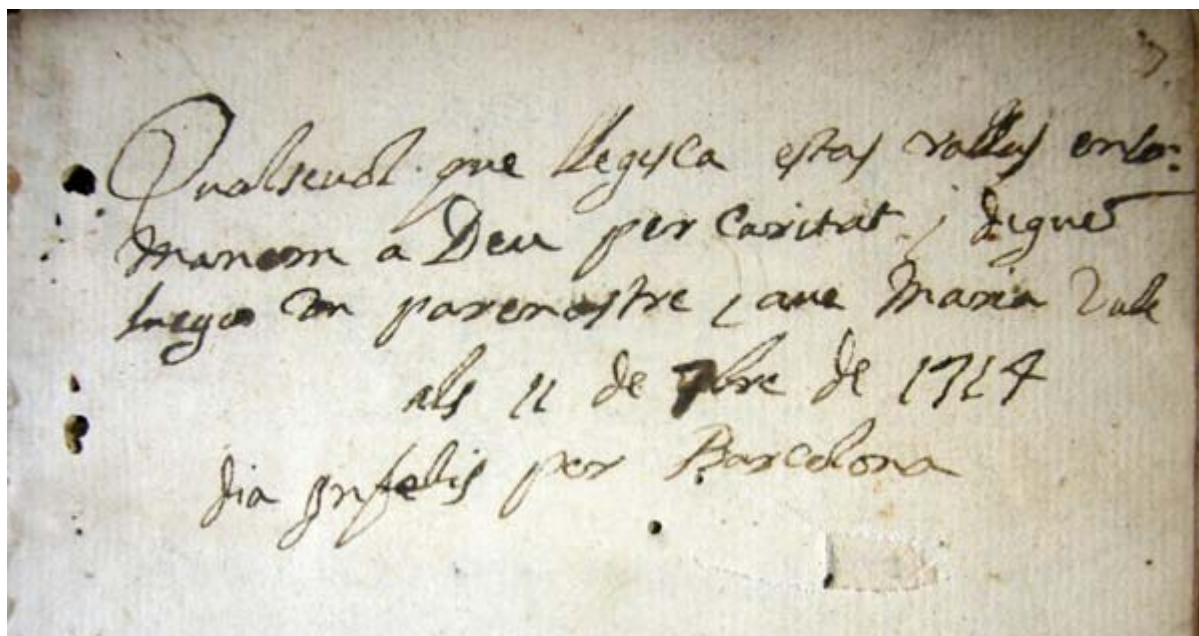 Qualsevol que llegisca estas rallas enco=
manem a Deu per caritat, y digue
luego un parenostre y ave Maria Vale
als 11 de 7bre de 1714
dia infelis per Barcelona